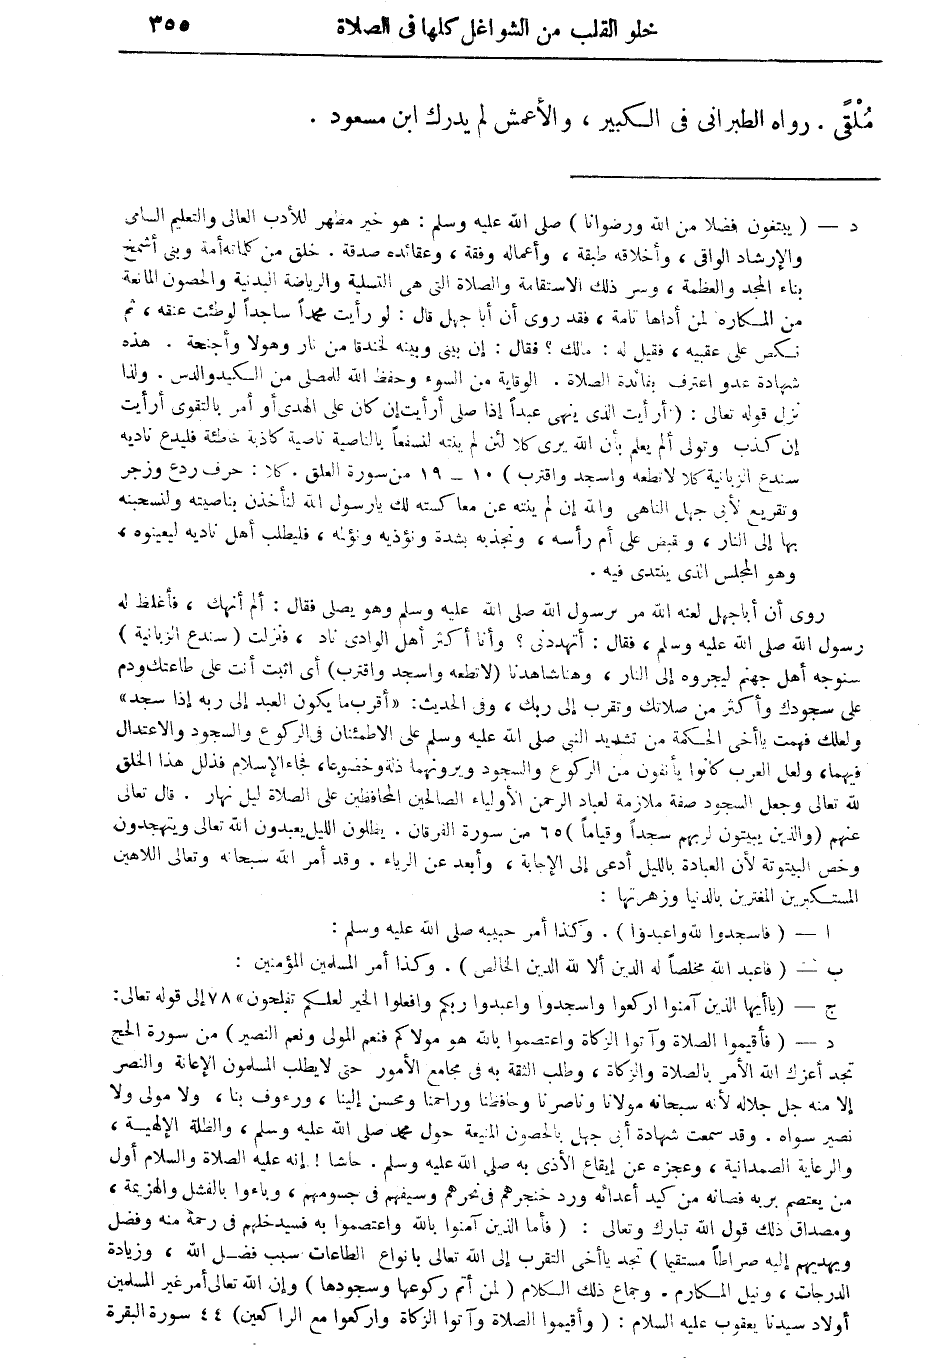 خلو القلب من الشواغل كلها فى الصلاة ٣٥٥
مُلْقًى . رواه الطبرانى فى الكبير ، والأعمش لم يدرك ابن مسعود .
د — ( يبتغون فضلا من الله ورضوانا ) صلى الله عليه وسلم : هو خير مظهر للأدب العالى والتعليم السامى
والإرشاد الواقى ، وأخلاقه طبقة ، وأعماله وفقة ، وعقائده صدقة . خلق من كلماته أمة وبنى أشمخ
بناء المجد والعظمة ، وسر ذلك الاستقامة والصلاة التى هى التسلية والرياضة البدنية والحصون المانعة
من المكاره لمن أداها تامة ، فقد روى أن أبا جهل قال : لو رأيت محمداً ساجداً لوطئت عنقه ، ثم
نكص على عقبيه ، فقيل له : مالك ؟ فقال : إن بينى وبينه لخندقا من نار وهولا وأجنحة . هذه
شهادة عدو اعترف بفائدة الصلاة . الوقاية من السوء وحفظ الله للمصلى من الكيد والدس . ولذا
نزل قوله تعالى : ( أرأيت الذى ينهى عبداً إذا صلى أرأيت إن كان على الهدى أو أمر بالتقوى أرأيت
إن كذب وتولى ألم يعلم بأن الله يرى كلا لئن لم ينته لنسفعاً بالناصية ناصية كاذبة خاطئة فليدع ناديه
سندع الزبانية كلا لا تطعه واسجد واقترب ) ١٠ – ١٩ من سورة العلق . كلا : حرف ردع وزجر
وتقريع لأبى جهل الناهى والله إن لم ينته عن معاكسته لك يارسول الله لنأخذن بناصيته ولنسحبنه
بها إلى النار ، ونقبض على أم رأسه ، ونجذبه بشدة ونؤذيه ونؤلمه ، فليطلب أهل ناديه ليعينوه ،
وهو المجلس الذى ينتدى فيه .
روى أن أباجهل لعنه الله مر برسول الله صلى الله عليه وسلم وهو يصلى فقال : ألم أنهك ، فأغلظ له
رسول الله صلى الله عليه وسلم ، فقال : أتهددنى ؟ وأنا أكثر أهل الوادى ناد ، فنزلت ( سندع الزبانية )
سنوجه أهل جهنم ليجروه إلى النار ، وهنا شاهدنا (لا تطعه واسجد واقترب) أى اثبت أنت على طاعتك ودم
على سجودك وأكثر من صلاتك وتقرب إلى ربك ، وفى الحديث: «أقرب ما يكون العبد إلى ربه إذا سجد»
ولعلك فهمت ياأخى الحكمة من تشديد النبى صلى الله عليه وسلم على الاطمئنان فى الركوع والسجود والاعتدال
فيهما، ولعل العرب كانوا يأنفون من الركوع والسجود ويرونهما ذلة وخضوعا، فجاء الإسلام فذلل هذا الخلق
لله تعالى وجعل السجود صفة ملازمة لعباد الرحمن الأولياء الصالحين المحافظين على الصلاة ليل نهار . قال تعالى
عنهم (والذين يبيتون لربهم سجداً وقياماً )٦٥ من سورة الفرقان . يظلون الليل يعبدون الله تعالى ويتهجدون
وخص البيتوتة لأن العبادة بالليل أدعى إلى الإجابة ، وأبعد عن الرياء . وقد أمر الله سبحانه وتعالى اللاهين
المستكبرين المغترين بالدنيا وزهرتها :
ا — ( فاسجدوا لله واعبدوا ) . وكذا أمر حبيبه صلى الله عليه وسلم :
ب — ( فاعبد الله مخلصاً له الدين ألا لله الدين الخالص ) . وكذا أمر المسلمين المؤمنين :
ج — (ياأيها الذين آمنوا اركعوا واسجدوا واعبدوا ربكم وافعلوا الخير لعلكم تفلحون» ٧٨ إلى قوله تعالى:
د — ( فأقيموا الصلاة وآتوا الزكاة واعتصموا بالله هو مولاكم فنعم المولى ونعم النصير ) من سورة الحج
تجد أعزك الله الأمر بالصلاة والزكاة ، وطلب الثقة به فى مجامع الأمور حتى لايطلب المسلمون الإعانة والنصر
إلا منه جل جلاله لأنه سبحانه مولانا وناصرنا وحافظنا وراحمنا ومحسن إلينا ، ورءوف بنا ، ولا مولى ولا
نصير سواه . وقد سمعت شهادة أبى جهل بالحصون المنيعة حول محمد صلى الله عليه وسلم ، والظلة الإلهية ،
والرعاية الصمدانية ، وعجزه عن إيقاع الأذى به صلى الله عليه وسلم . حاشا ! إنه عليه الصلاة والسلام أول
من يعتصم بربه فصانه من كيد أعدائه ورد خنجرهم فى نحرهم وسيفهم فى جسومهم ، وباءوا بالفشل والهزيمة ،
ومصداق ذلك قول الله تبارك وتعالى : ( فأما الذين آمنوا بالله واعتصموا به فسيدخلهم فى رحمة منه وفضل
ويهديهم إليه صراطاً مستقيما ) تجد ياأخى التقرب إلى الله تعالى بانواع الطاعات سبب فضل الله ، وزيادة
الدرجات ، ونيل المكارم . وجماع ذلك الكلام ( لمن أتم ركوعها وسجودها ) وإن الله تعالى أمر غير المسلمين
أولاد سيدنا يعقوب عليه السلام : ( وأقيموا الصلاة وآتوا الزكاة واركعوا مع الراكعين) ٤٤ سورة البقرة